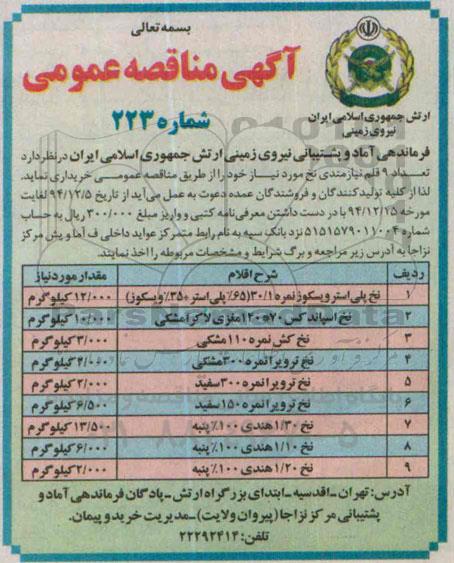 بسمه تعالی
آگهی مناقصه عمومی
شماره ۲۲۳
ارتش جمهوری اسلامی ایران
نیروی زمینی
فرماندهی آماد و پشتیبانی نیروی زمینی ارتش جمهوری اسلامی ایران در نظر دارد
تعداد ۹ قلم نیازمندی نخ مورد نیاز خود را از طریق مناقصه عمومی خریداری نماید.
لذا از کلیه تولیدکنندگان و فروشندگان عمده دعوت به عمل می‌آید از تاریخ ۹۴/۱۲/۵ لغایت
مورخه ۹۴/۱۲/۱۵ با در دست داشتن معرفی‌نامه کتبی و واریز مبلغ ۳۰۰/۰۰۰ ریال به حساب
شماره ۵۱۵۱۵۷۹۰۱۱۰۰۴ نزد بانک سپه به نام رابط متمرکز عواید داخلی ف آما و پش مرکز
نزاجا به آدرس زیر مراجعه و برگ شرایط و مشخصات مربوطه را اخذ نمایند.
ردیف شرح اقلام مقدار مورد نیاز
۱ نخ پلی استر ویسکوز نمره ۳۰/۱ (۶۵٪ پلی استر + ۳۵٪ ویسکوز) ۱۲/۰۰۰ کیلوگرم
۲ نخ اسپاندکس ۷۰ * ۱۲۰ مغزی لاکرا مشکی ۱۰/۰۰۰ کیلوگرم
۳ نخ کش نمره ۱۱۰ مشکی ۳/۰۰۰ کیلوگرم
۴ نخ ترویرا نمره ۳۰۰ مشکی ۴/۰۰۰ کیلوگرم
۵ نخ ترویرا نمره ۳۰۰ سفید ۲/۰۰۰ کیلوگرم
۶ نخ ترویرا نمره ۱۵۰ سفید ۶/۵۰۰ کیلوگرم
۷ نخ ۱/۳۰ هندی ۱۰۰٪ پنبه ۱۳/۵۰۰ کیلوگرم
۸ نخ ۱/۱۰ هندی ۱۰۰٪ پنبه ۶/۰۰۰ کیلوگرم
۹ نخ ۱/۲۰ هندی ۱۰۰٪ پنبه ۲/۰۰۰ کیلوگرم
آدرس: تهران ـ اقدسیه ـ ابتدای بزرگراه ارتش ـ پادگان فرماندهی آماد و
پشتیبانی مرکز نزاجا (پیروان ولایت) ـ مدیریت خرید و پیمان.
تلفن: ۲۲۲۹۲۴۱۴